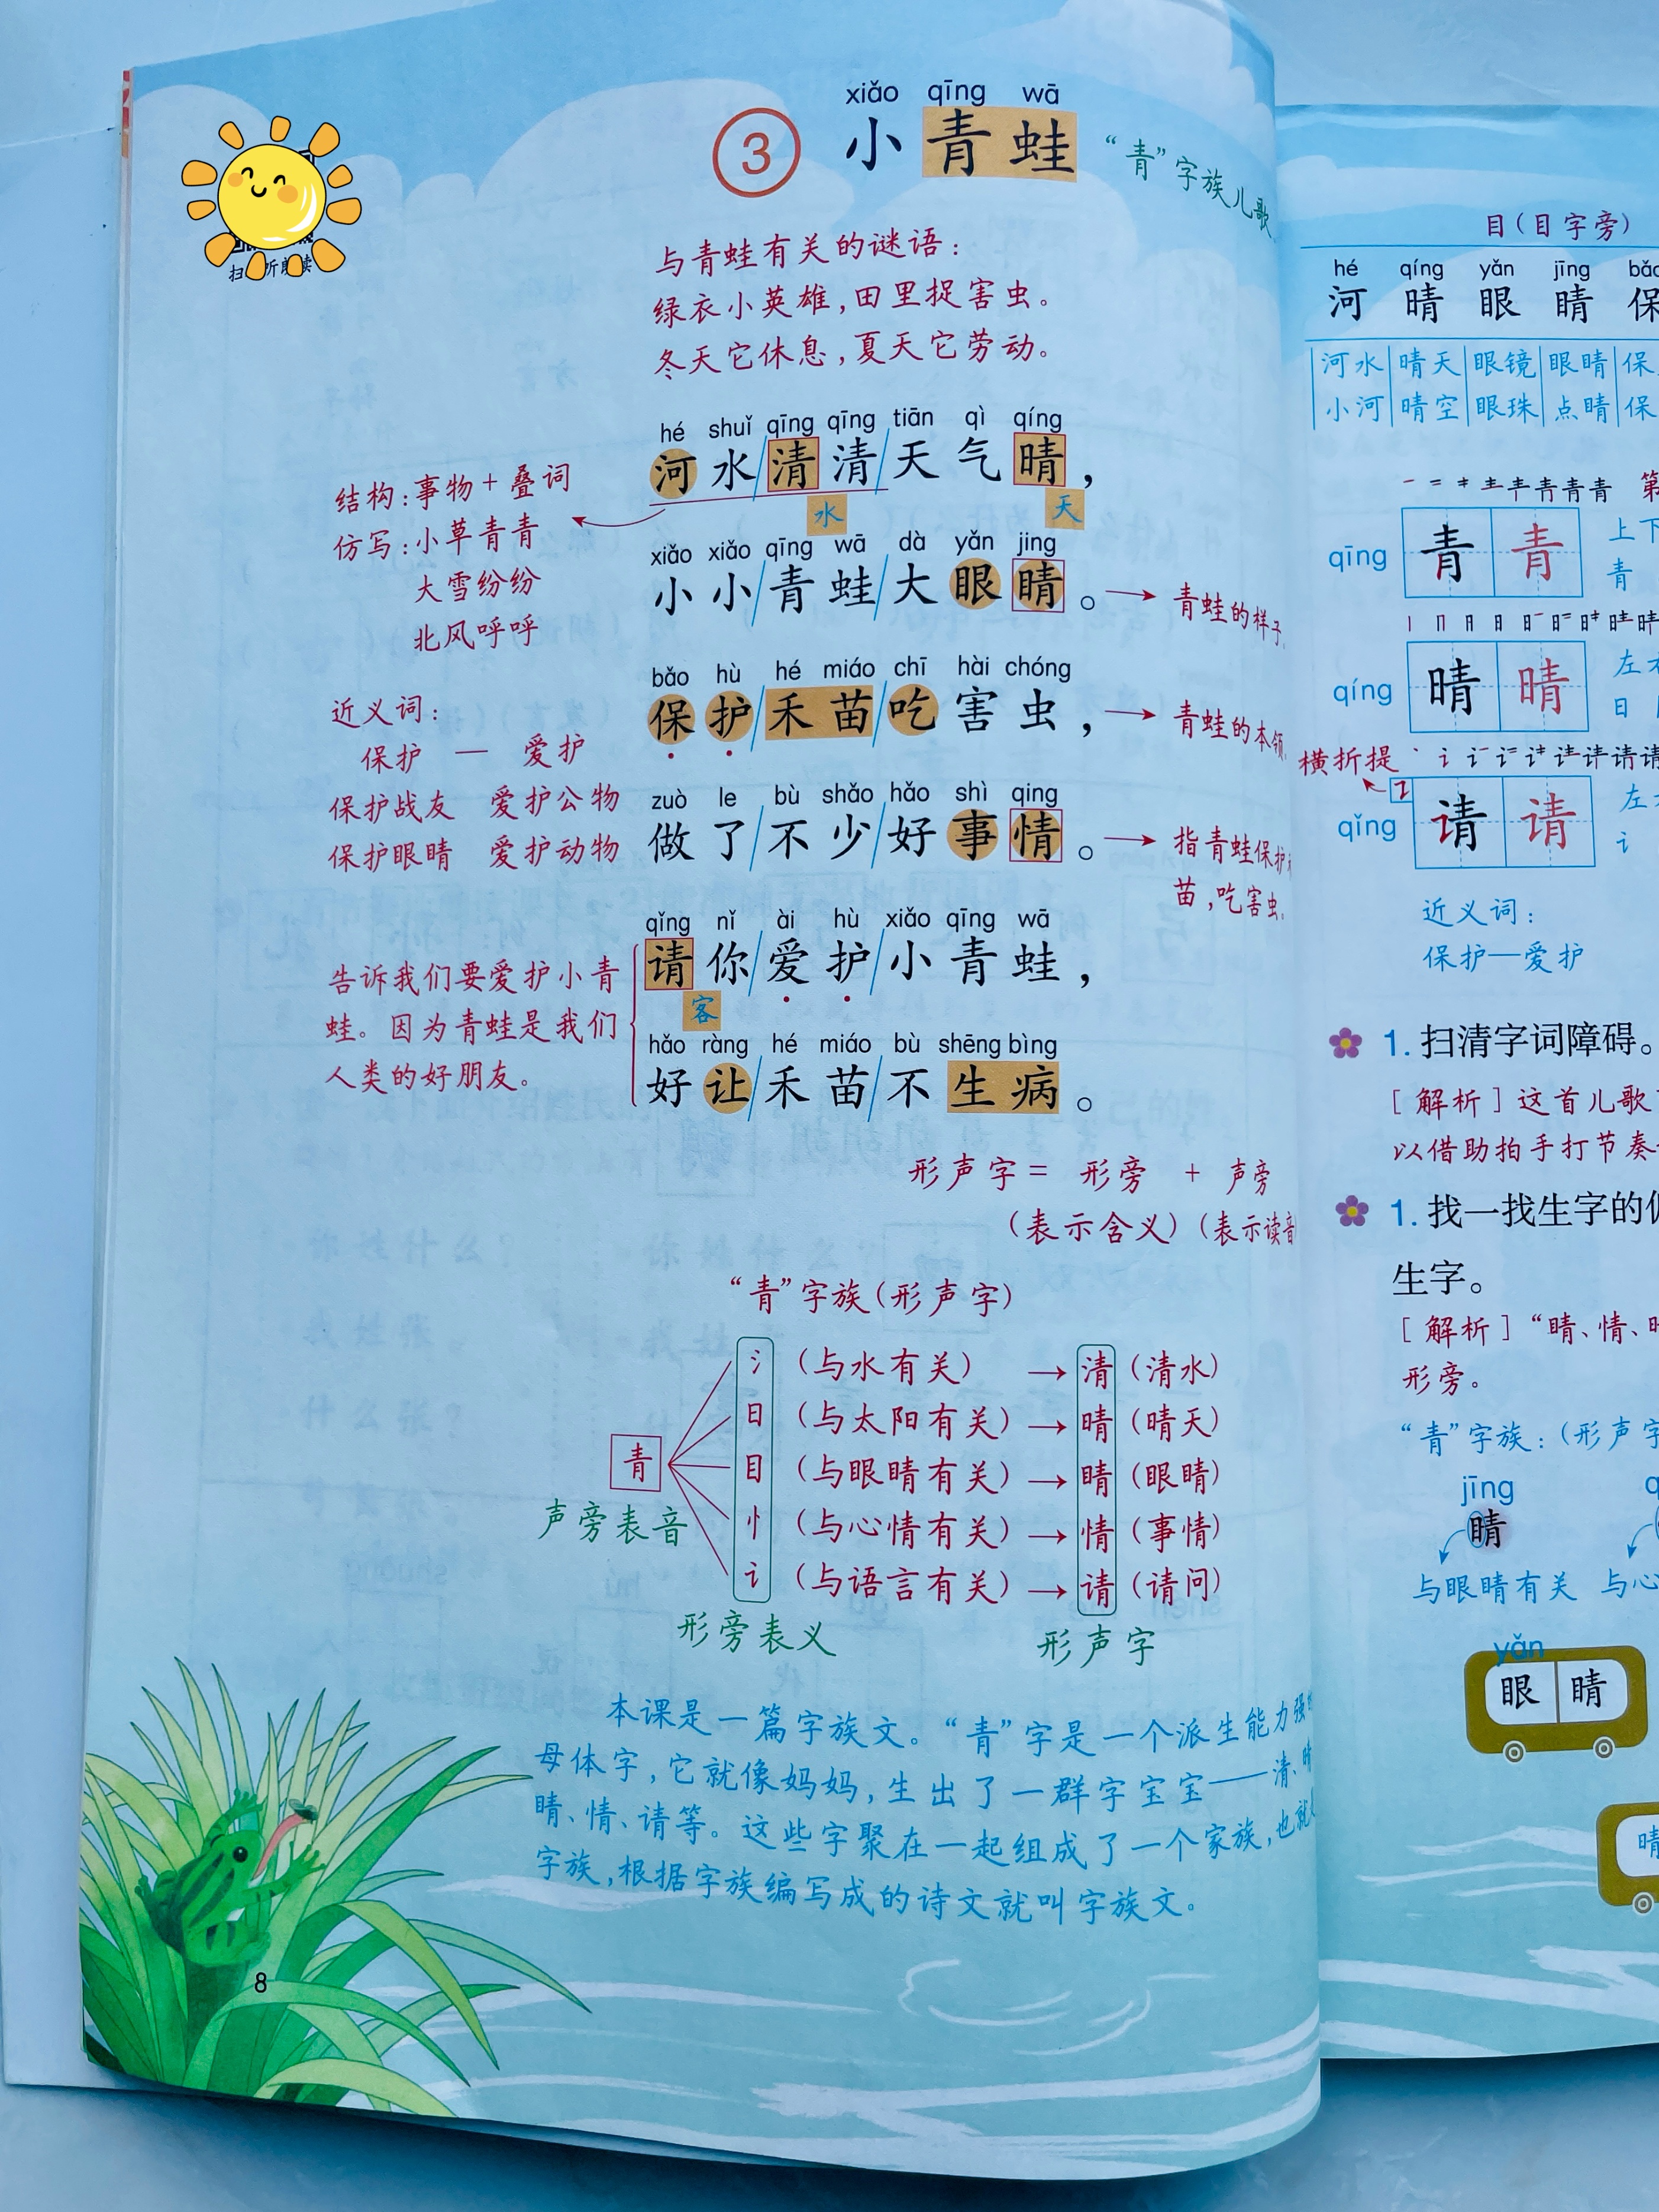 xiǎo qīng wā
③ 小青蛙
“青”字族儿歌
与青蛙有关的谜语：
绿衣小英雄，田里捉害虫。
冬天它休息，夏天它劳动。
hé shuǐ qīng qīng tiān qì qíng
河水清清天气晴，
水 天
xiǎo xiǎo qīng wā dà yǎn jing
小小青蛙大眼睛。
青蛙的样子
bǎo hù hé miáo chī hài chóng
保护禾苗吃害虫，
青蛙的本领
zuò le bù shǎo hǎo shì qing
做了不少好事情。
指青蛙保护
苗，吃害虫
qǐng nǐ ài hù xiǎo qīng wā
请你爱护小青蛙，
客
hǎo ràng hé miáo bù shēng bìng
好让禾苗不生病。
结构：事物+叠词
仿写：小草青青
大雪纷纷
北风呼呼
近义词：
保护 — 爱护
保护战友 爱护公物
保护眼睛 爱护动物
告诉我们要爱护小青
蛙。因为青蛙是我们
人类的好朋友。
形声字= 形旁 + 声旁
（表示含义）（表示读音
“青”字族（形声字）
青
声旁表音
氵（与水有关） → 清（清水）
日（与太阳有关） → 晴（晴天）
目（与眼睛有关） → 睛（眼睛）
忄（与心情有关） → 情（事情）
讠（与语言有关） → 请（请问）
形旁表义 形声字
本课是一篇字族文。“青”字是一个派生能力强
母体字，它就像妈妈，生出了一群字宝宝——清、晴
睛、情、请等。这些字聚在一起组成了一个家族，也就
字族，根据字族编写成的诗文就叫字族文。
8
目（目字旁）
hé qíng yǎn jīng
河 晴 眼 睛 保
河水 晴天 眼镜 眼睛 保
小河 晴空 眼珠 点睛 保
第
qīng 青 青 上下
青
qíng 晴 晴 左
日
横折提
qǐng 请 请 左
讠
近义词：
保护—爱护
1. 扫清字词障碍。
［解析］这首儿歌
以借助拍手打节奏
1. 找一找生字的
生字。
［解析］“睛、情、晴
形旁。
“青”字族：（形声字
jīng
睛
与眼睛有关 与心
yǎn
眼 睛